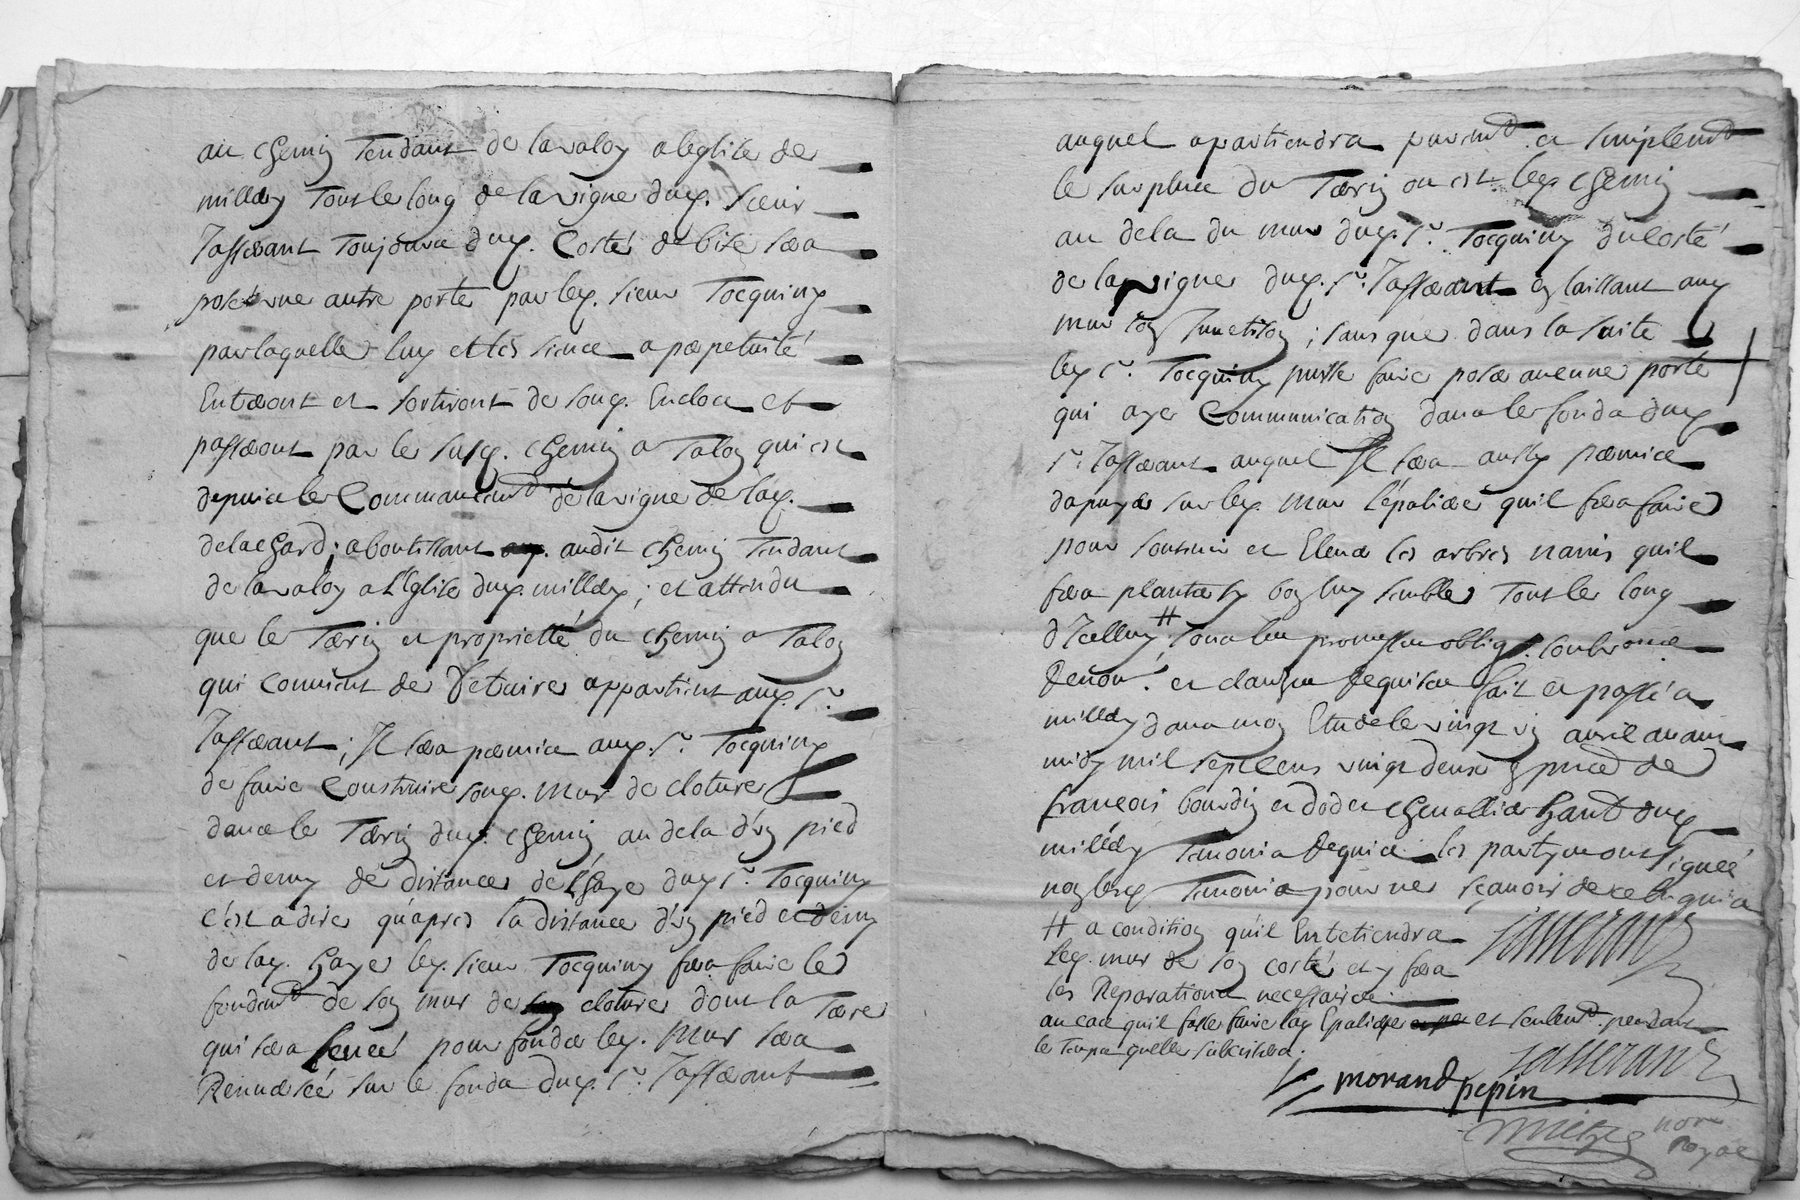 au chemin Tendant de lavaloy a leglise de
milley Tout le long de la vigne dud. sieur
Jasserant Toujours dud. Costé de bise sera
posé une autre porte par led. sieur Tocquiny
par laquelle luy et les siens a perpetuité
Entreront et sortiront de soud. Enclos et
passeront par le susd. chemin a Talon qui est
depuis le Commancemt de la vigne de lad.
delachard; aboutissant audit chemin Tendant
de lavaloy a L'Eglise dud. milley; et attendu
que le Terrin et proprietté du chemin a Talon
qui convient de detruire appartient aud. Sr.
Jasserant; Il sera permis aud. Sr. Tocquiny
de faire Construire soud. mur de cloture
dans le Terrin dud. chemin au dela d'un pied
et demy de distance de L'haye dud. Sr. Tocquiny
c'est a dire qu'apres la distance d'un pied et demy
de lad. haye led. sieur Tocquiny fera faire le
fondemt de son mur de cloture dont la Terre
qui sera pour fonder led. mur sera
Renversée sur le fonds dud. Sr. Jasserant
auquel apartiendra puremt et simplemt
le surplus du Terrin ou est led. chemin
au dela du mur dud. Sr. Tocquiny du Costé
de la vigne dud. Sr. Jasserant en laissant aud
mur son ; sans que dans la suite
led. Sr. Tocquiny puisse faire poser aucune porte
qui aye Communication dans le fonds dud
Sr. Jasserant auquel Il sera aussy permis
dapuyer sur led. mur l'epaliere quil fera faire
pour soutenir et Elever les arbres nains quil
fera planter sy bon luy semble Tout le long
d'Icelluy # Tous leur promesse oblig. soubmis
Renon. et clauses Requises fait et passé a
milley dans mon Etude le vingt un avril avant
midy mil sept cens vingt deux en pnce de
françois bourdin et chevallier habt dud
milley Temoins Requis les partyes ont signeé
non led. Temoins pour ne sçavoir de ce Enquis
# a condition qu'il Entetiendra
Led. mur de son costé et y fera
les Reparations necessaires
au cas quil fasse faire lad Epaliere et seulemt. pendant
le Temps quelle subsistera.
Jasserand
Jasserand
morand pepin
nore
Royal